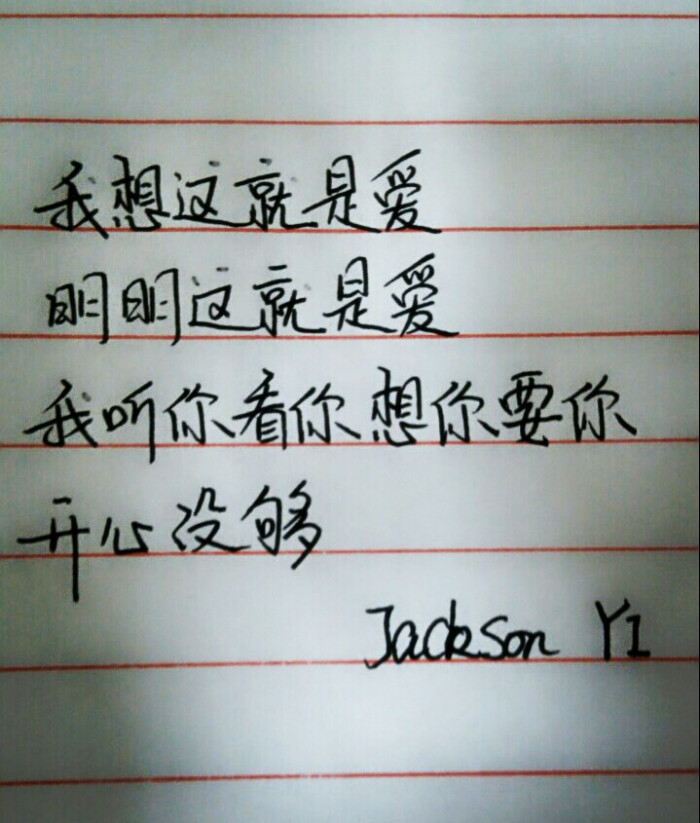 我想这就是爱
明明这就是爱
我听你看你想你要你
开心没够
Jackson Yi